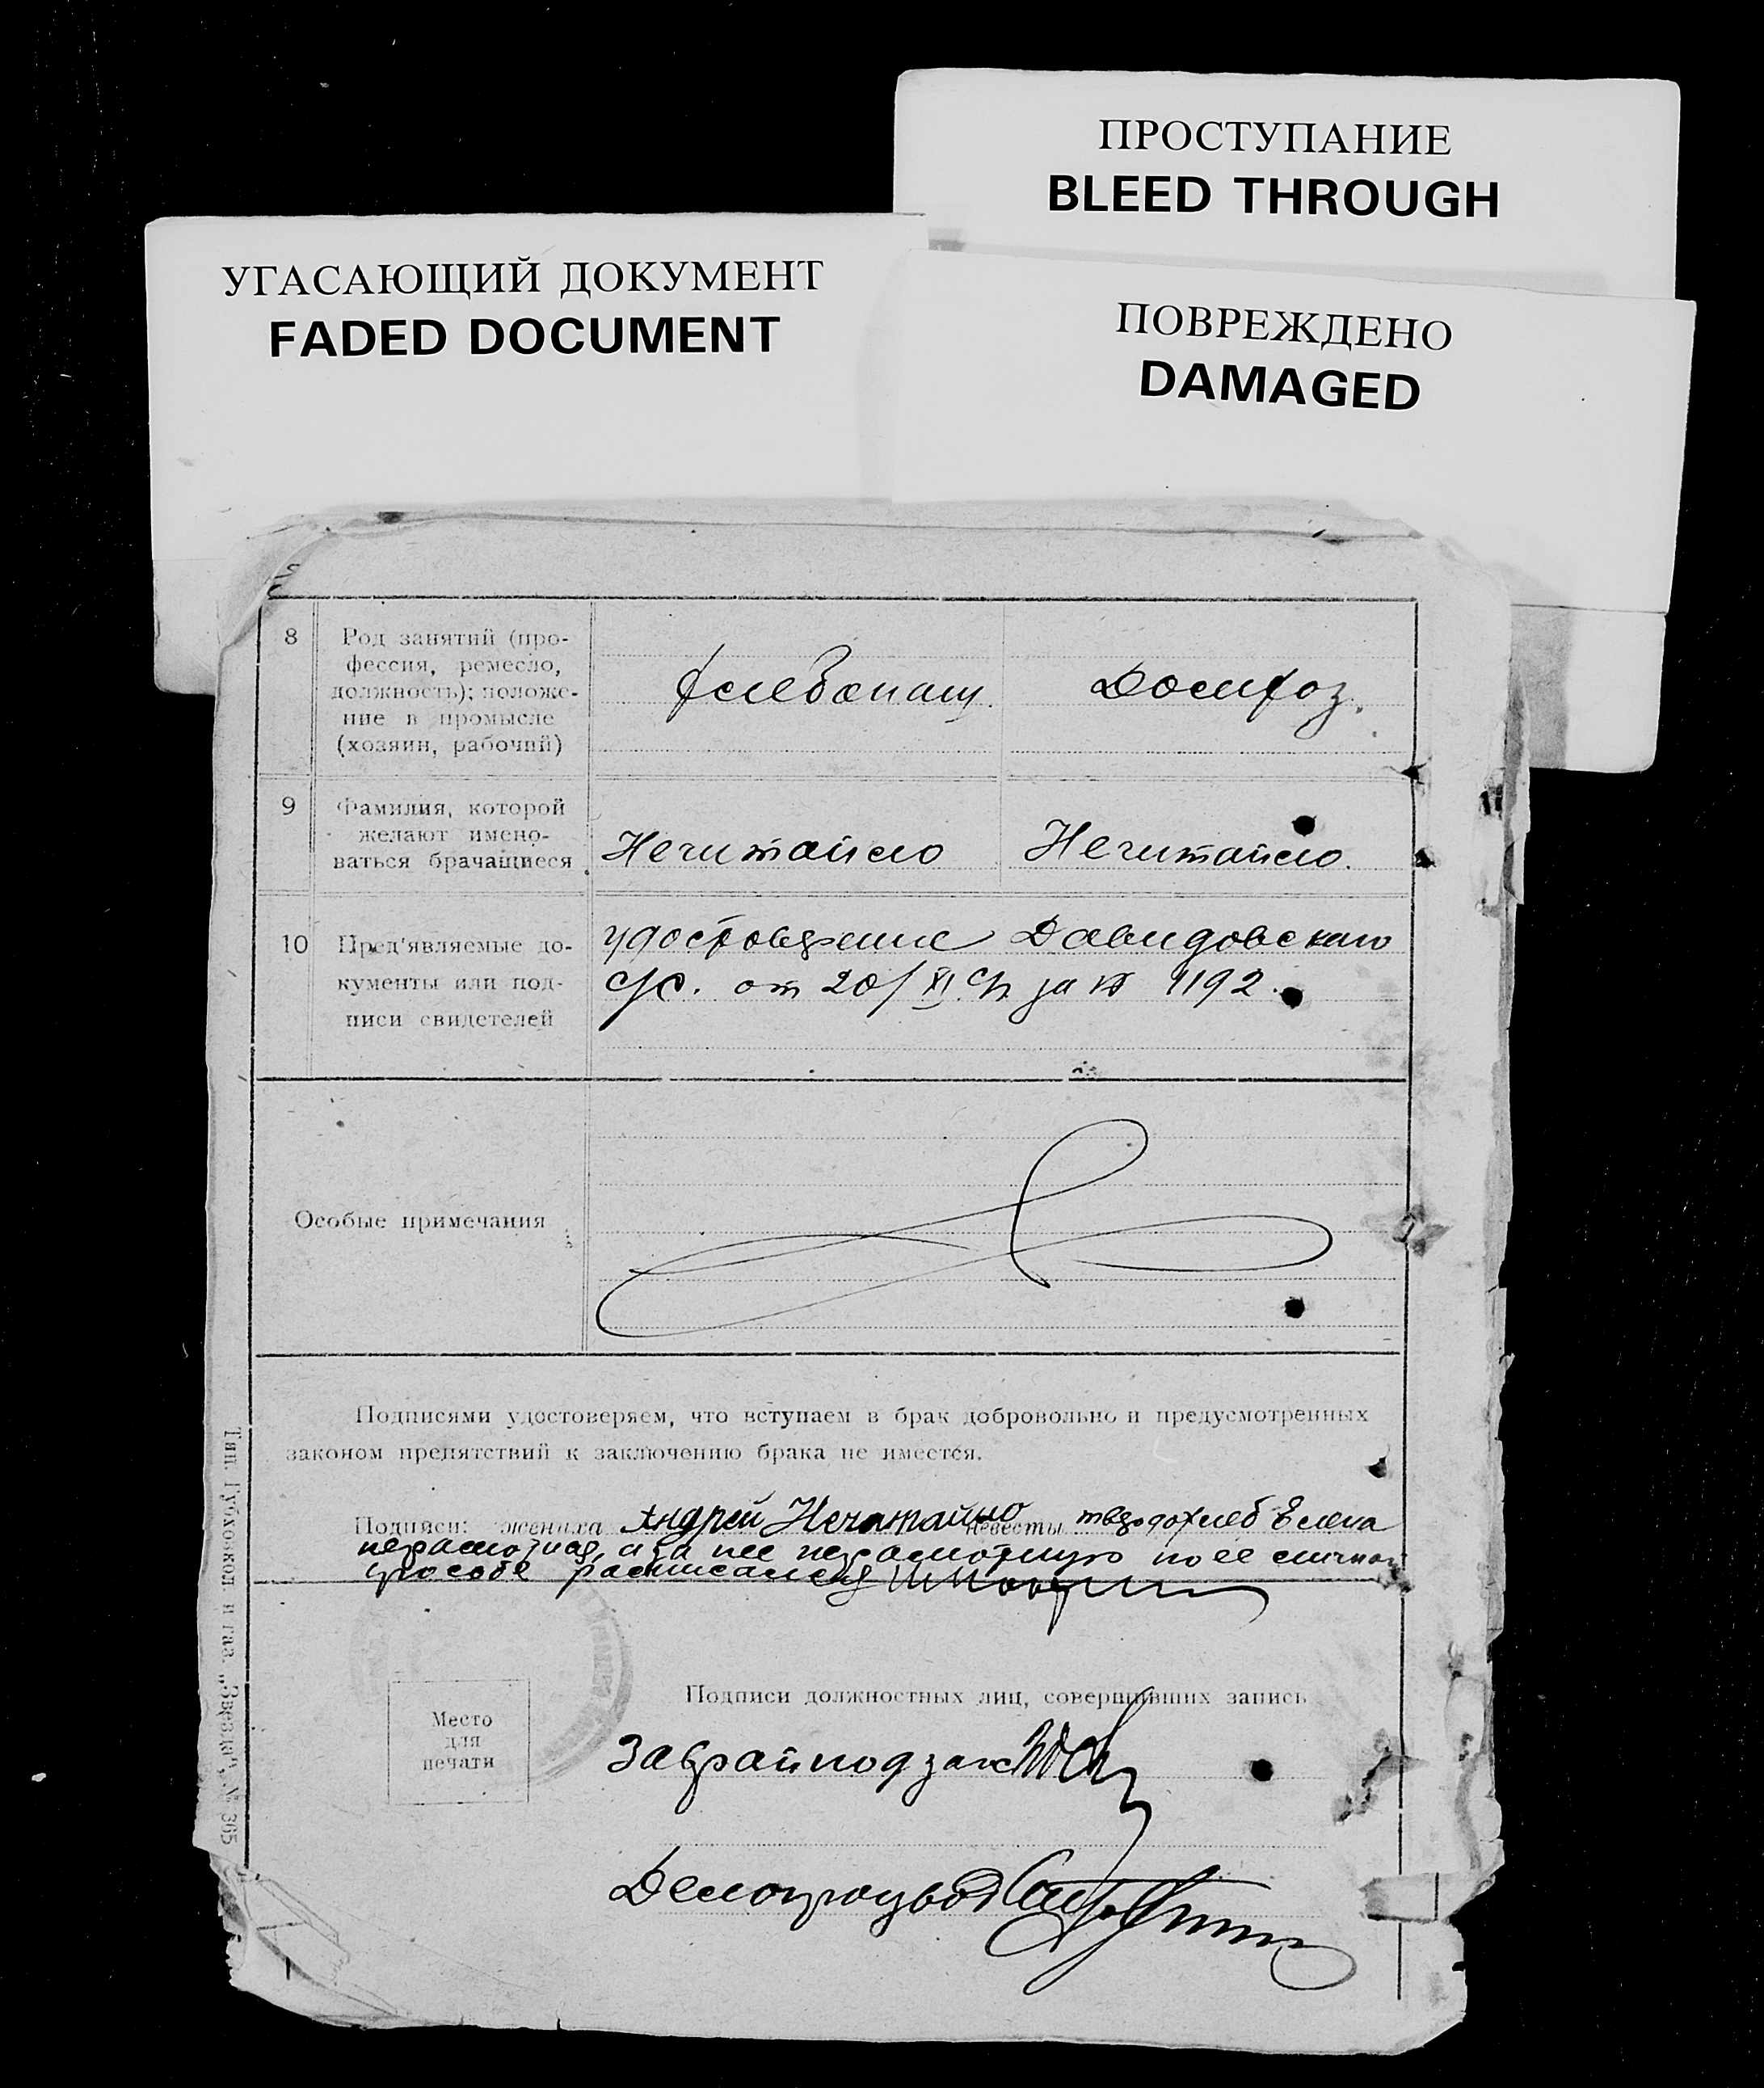 ПРОСТУПАНИЕ
BLEED THROUGH
УГАСАЮЩИЙ ДОКУМЕНТ
FADED DOCUMENT
ПОВРЕЖДЕНО
DAMAGED
8
Род занятий (про-
фессия, ремесло,
должность); положе-
ние в промысле
(хозяин, рабочий)
хлебопаш.
Домхоз.
9
Фамилия, которой
желают имено-
ваться брачащиеся
Нечитайло
Нечитайло.
10
Пред'являемые до-
кументы или под-
писи свидетелей
удостоверение Давидовского
с/с. от 20/XI с/г за № 1192.
Особые примечания
Подписями удостоверяем, что вступаем в брак добровольно и предусмотренных
законом препятствий к заключению брака не имеется.
Подписи: жениха Андрей Нечитайло невесты твердохлеб Елена
неграмотная, а за нее неграмотную по ее личной
просьбе расписался
Место
для
печати
Подписи должностных лиц, совершивших запись
Заврайподзагс
Делопроизвод
Тип. Губхозкол и газ. „Звезда", № 365